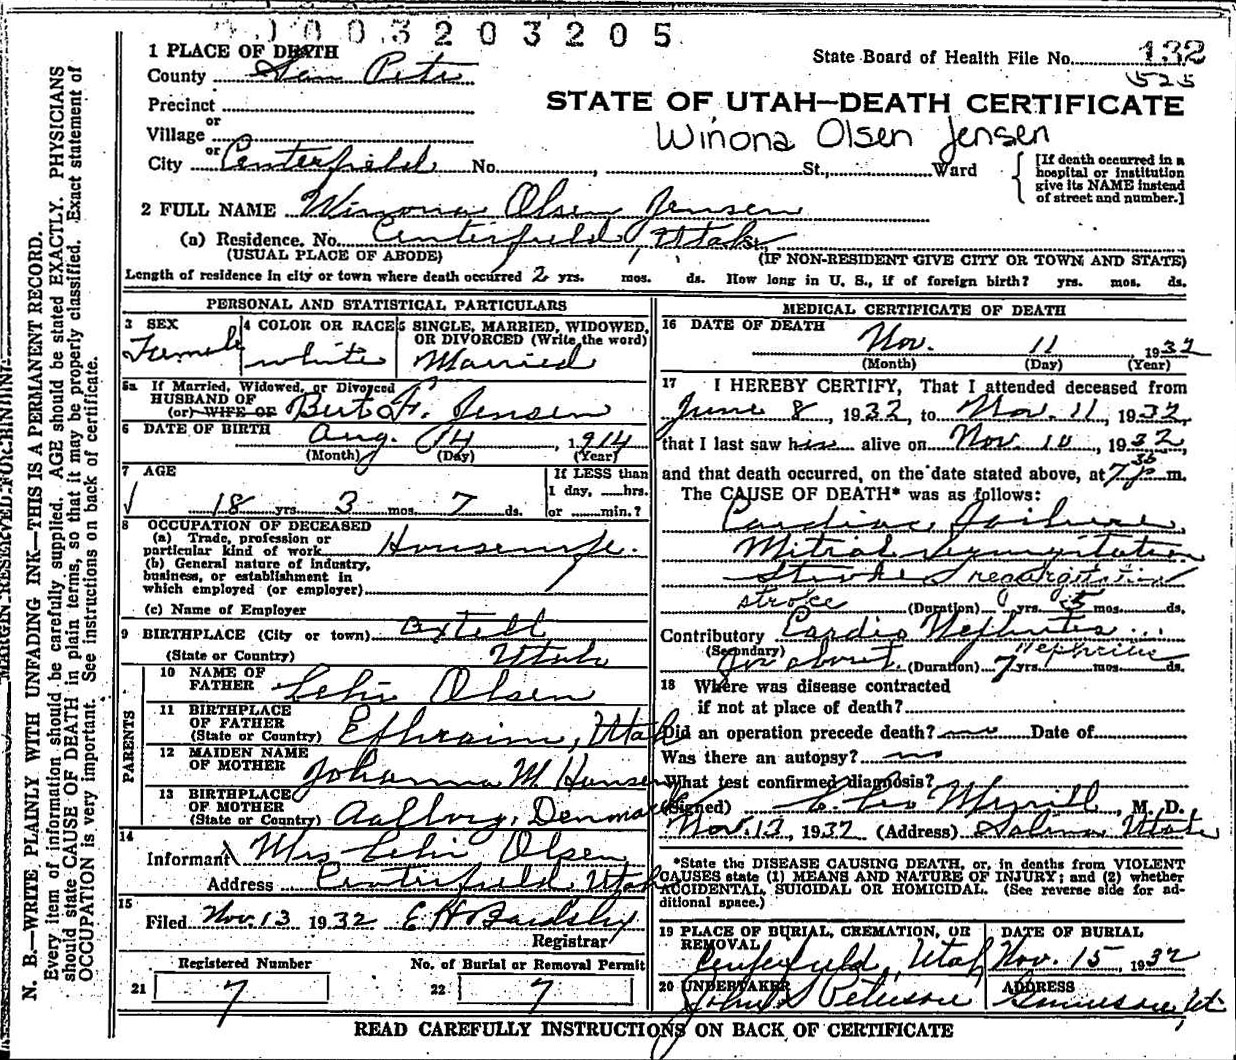 0 0 3 2 0 3 2 0 5
1 PLACE OF DEATH
County San Pete
State Board of Health File No. 132
525
Precinct
or
Village
or
City Centerfield No. , St., Ward
STATE OF UTAH—DEATH CERTIFICATE
Winona Olsen Jensen
[If death occurred in a
hospital or institution
give its NAME instead
of street and number.]
2 FULL NAME Winona Olsen Jensen
(a) Residence. No. Centerfield, Utah
(USUAL PLACE OF ABODE) (IF NON-RESIDENT GIVE CITY OR TOWN AND STATE)
Length of residence in city or town where death occurred 2 yrs. mos. ds. How long in U. S., if of foreign birth? yrs. mos. ds.
PERSONAL AND STATISTICAL PARTICULARS
3 SEX
Female
4 COLOR OR RACE
white
5 SINGLE, MARRIED, WIDOWED,
OR DIVORCED (Write the word)
Married
5a If Married, Widowed, or Divorced
HUSBAND OF
(or) WIFE OF Bert F. Jensen
6 DATE OF BIRTH Aug. 14, 1914
(Month) (Day) (Year)
7 AGE
18 yrs. 3 mos. 7 ds.
If LESS than
1 day, hrs.
or min.?
8 OCCUPATION OF DECEASED
(a) Trade, profession or
particular kind of work Housewife.
(b) General nature of industry,
business, or establishment in
which employed (or employer)
(c) Name of Employer
9 BIRTHPLACE (City or town) Axtell
(State or Country) Utah
PARENTS
10 NAME OF
FATHER Lehi Olsen
11 BIRTHPLACE
OF FATHER
(State or Country) Ephraim, Utah
12 MAIDEN NAME
OF MOTHER Johanna M. Hansen
13 BIRTHPLACE
OF MOTHER
(State or Country) Aalborg, Denmark
14
Informant Mrs Lehi Olsen
Address Centerfield Utah
15
Filed Nov. 13 1932 E H Bardsley
Registrar
Registered Number
21 7
No. of Burial or Removal Permit
22 7
MEDICAL CERTIFICATE OF DEATH
16 DATE OF DEATH
Nov. 11, 1932
(Month) (Day) (Year)
17 I HEREBY CERTIFY, That I attended deceased from
June 8, 1932, to Nov. 11, 1932,
that I last saw him alive on Nov. 10, 1932,
and that death occurred, on the date stated above, at 7 35 p. m.
The CAUSE OF DEATH* was as follows:
Cardiac Failure
Mitral regurgitation
Stroke regurgitation
stroke (Duration) yrs. 5 mos. ds.
Contributory Cardio Nephritis
(Secondary) Nephritis
for about (Duration) 7 yrs. mos. ds.
18 Where was disease contracted
if not at place of death?
Did an operation precede death? no Date of
Was there an autopsy? no
What test confirmed diagnosis?
(Signed) Merrill, M. D.
Nov. 13, 1932 (Address) Salina Utah
*State the DISEASE CAUSING DEATH, or, in deaths from VIOLENT
CAUSES state (1) MEANS AND NATURE OF INJURY; and (2) whether
ACCIDENTAL, SUICIDAL OR HOMICIDAL. (See reverse side for ad-
ditional space.)
19 PLACE OF BURIAL, CREMATION, OR
REMOVAL
Centerfield, Utah
DATE OF BURIAL
Nov. 15, 1932
20 UNDERTAKER
John S Peterson
ADDRESS
Gunnison, Ut
READ CAREFULLY INSTRUCTIONS ON BACK OF CERTIFICATE
MARGIN RESERVED FOR BINDING
N. B.—WRITE PLAINLY WITH UNFADING INK—THIS IS A PERMANENT RECORD.
Every item of information should be carefully supplied. AGE should be stated EXACTLY. PHYSICIANS
should state CAUSE OF DEATH in plain terms, so that it may be properly classified. Exact statement of
OCCUPATION is very important. See instructions on back of certificate.